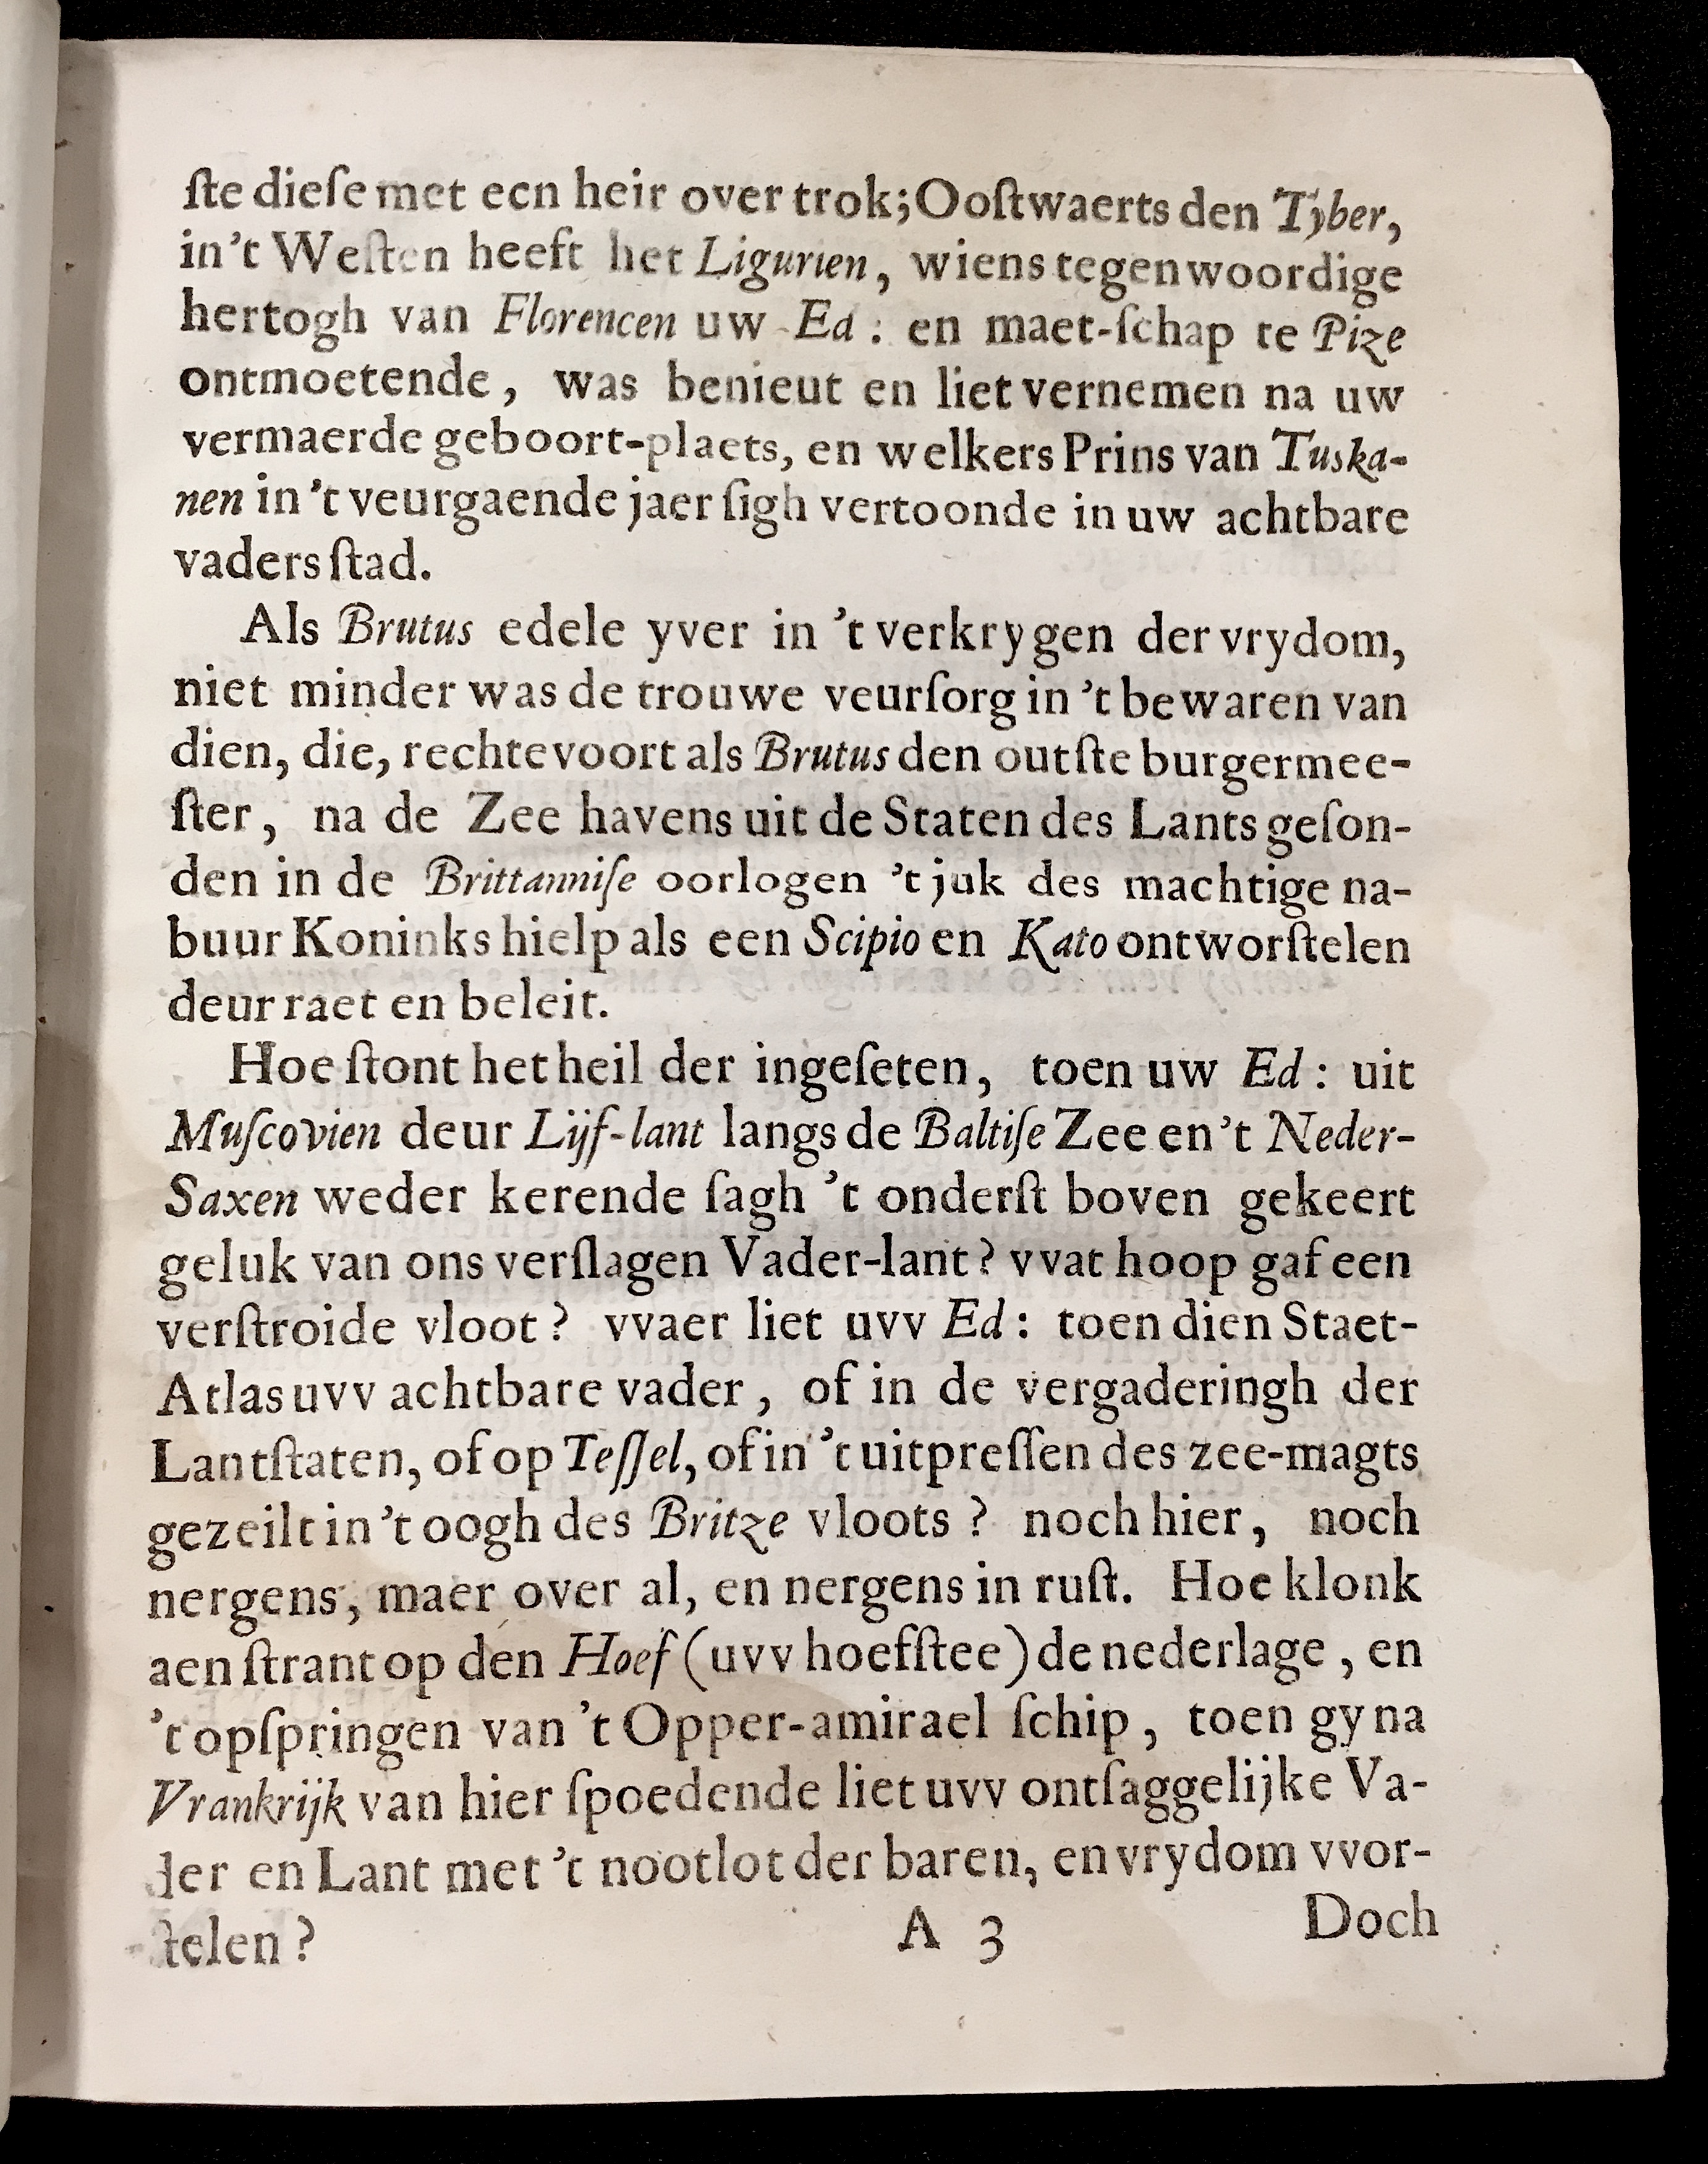 ſte dieſe met een heir over trok; Ooſtwaerts den Tyber,
in't Weſten heeft het Ligurien, wiens tegenwoordige
hertogh van Florencen uw Ed: en maet-ſchap te Pize
ontmoetende, was benieut en liet vernemen na uw
vermaerde geboort-plaets, en welkers Prins van Tuska-
nen in 't veurgaende jaer ſigh vertoonde in uw achtbare
vaders ſtad.
Als Brutus edele yver in 't verkrygen der vrydom,
niet minder was de trouwe veurſorg in 't bewaren van
dien, die, rechtevoort als Brutus den outſte burgermee-
ſter, na de Zee havens uit de Staten des Lants geſon-
den in de Brittanniſe oorlogen 't juk des machtige na-
buur Koninks hielp als een Scipio en Kato ontworſtelen
deur raet en beleit.
Hoe ſtont het heil der ingeſeten, toen uw Ed: uit
Muſcovien deur Lijf-lant langs de Baltiſe Zee en't Neder-
Saxen weder kerende ſagh 't onderſt boven gekeert
geluk van ons verſlagen Vader-lant? vvat hoop gaf een
verſtroide vloot? vvaer liet uvv Ed: toen dien Staet-
Atlas uvv achtbare vader, of in de vergaderingh der
Lantſtaten, of op Teſſel, of in 't uitpreſſen des zee-magts
gezeilt in 't oogh des Britze vloots? noch hier, noch
nergens, maer over al, en nergens in ruſt. Hoe klonk
aen ſtrant op den Hoef (uvv hoefſtee) de nederlage, en
't opſpringen van 't Opper-amirael ſchip, toen gy na
Vrankrijk van hier ſpoedende liet uvv ontſaggelijke Va-
der en Lant met 't nootlot der baren, en vrydom vvor-
ſtelen?
A 3
Doch